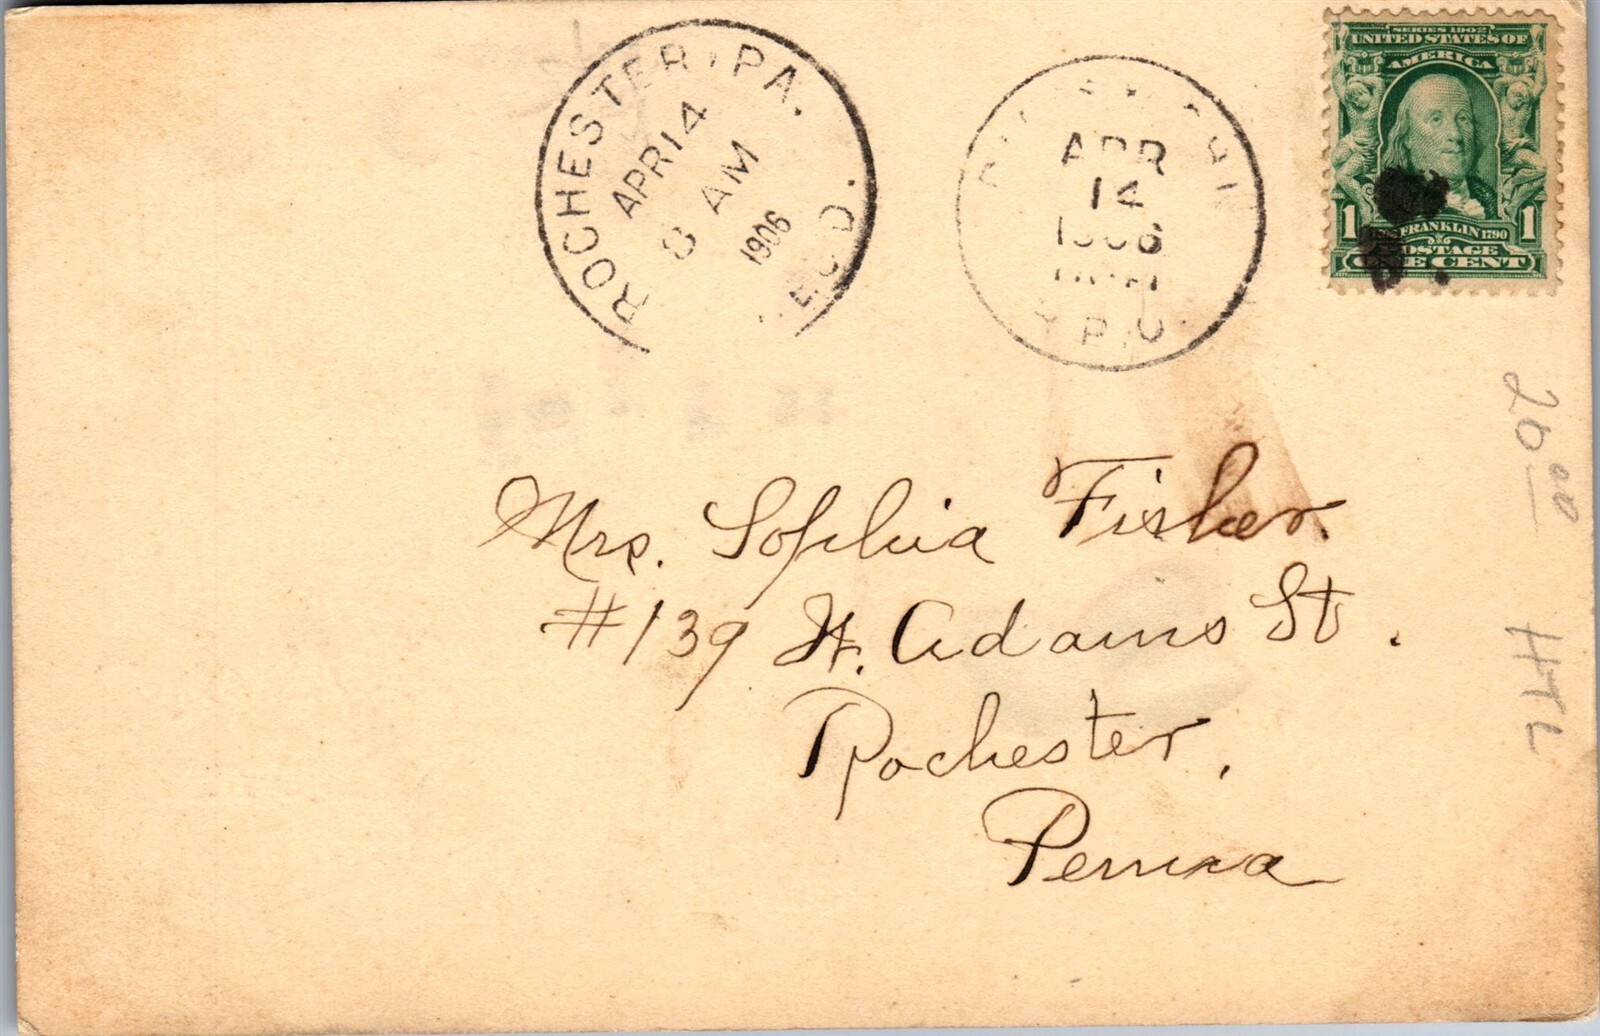 ROCHESTER, PA.
APR 14
8 AM
1906
REC'D.
APR
14
1906
R.P.O.
SERIES 1902
UNITED STATES OF
AMERICA
1 FRANKLIN 1790 1
POSTAGE
ONE CENT
Mrs. Sophia Fisher.
#139 W. Adams St.
Rochester,
Penna
20.00
HTL